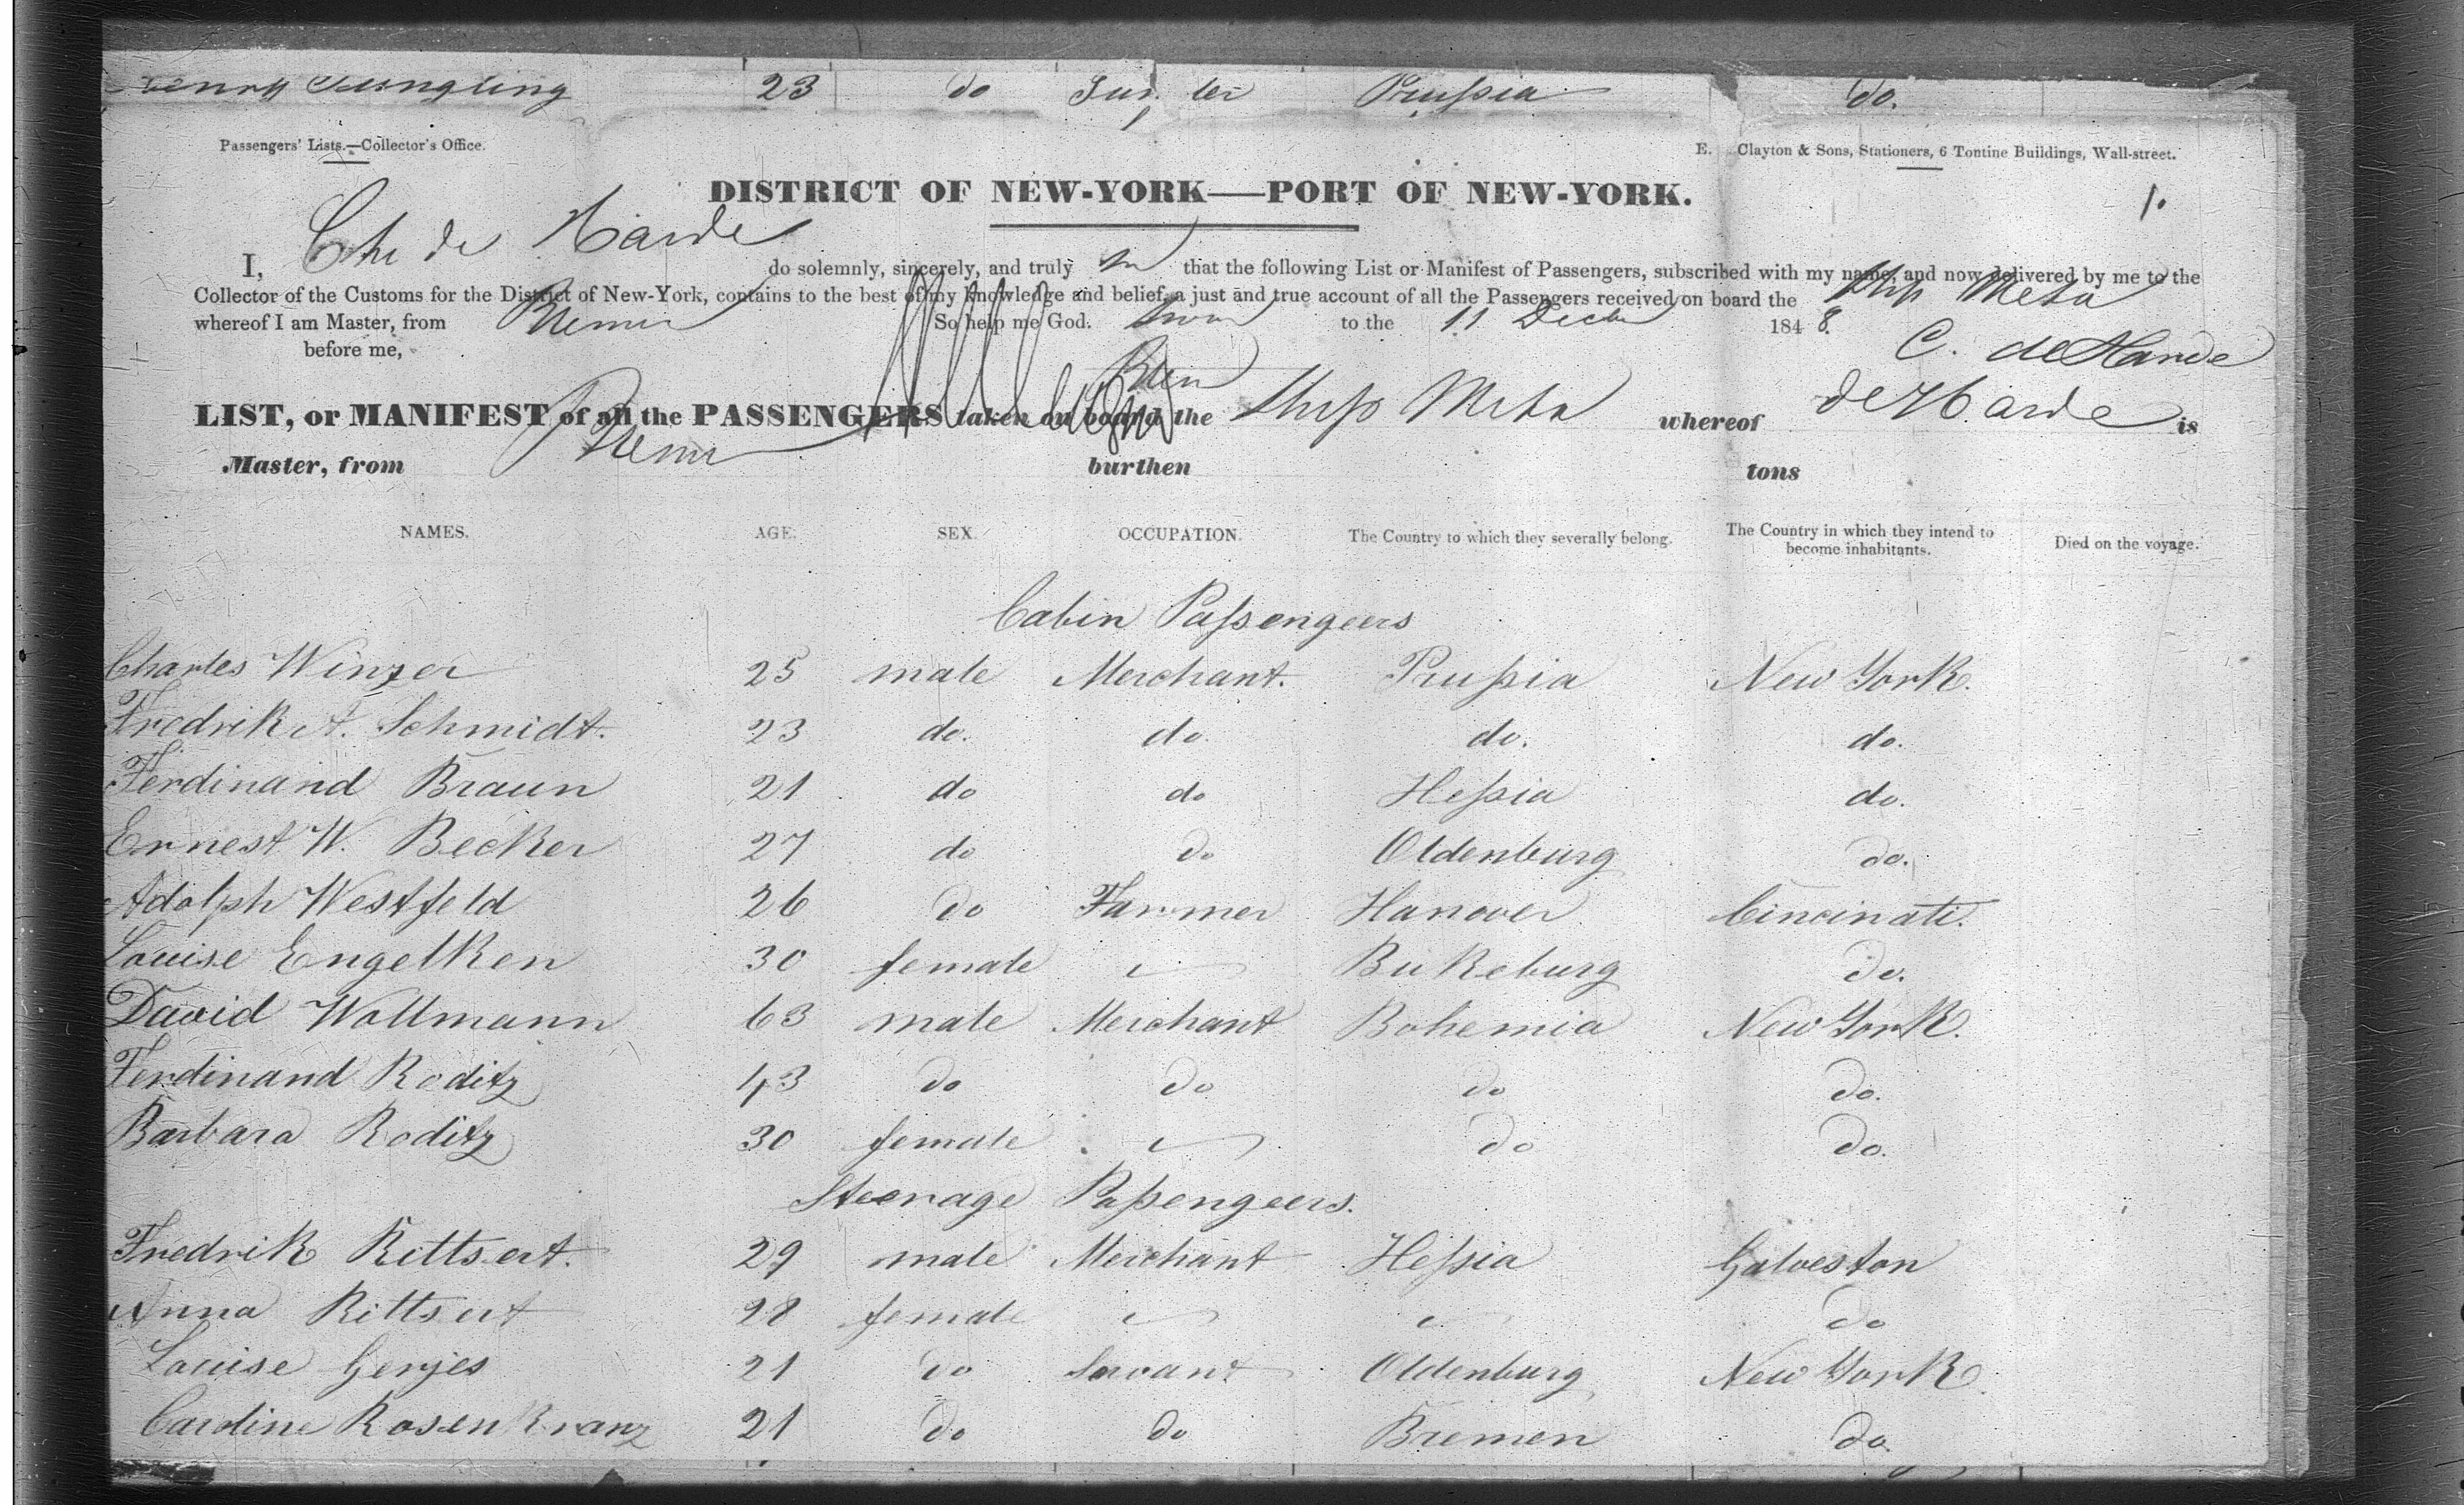 Henry Jüngling 23 do Prussia do.
Passengers' Lists.—Collector's Office. E. Clayton & Sons, Stationers, 6 Tontine Buildings, Wall-street.
DISTRICT OF NEW-YORK—PORT OF NEW-YORK.
1.
I, Chr de Harde do solemnly, sincerely, and truly that the following List or Manifest of Passengers, subscribed with my name, and now delivered by me to the
Collector of the Customs for the District of New-York, contains to the best of my knowledge and belief, a just and true account of all the Passengers received on board the Ship Meta
whereof I am Master, from Bremen So help me God. Sworn to the 11 Decbr 1848.
before me, C. de Harde
LIST, or MANIFEST of all the PASSENGERS taken on board the Brem Ship Meta whereof de Harde is
Master, from Bremen burthen tons
NAMES. AGE. SEX. OCCUPATION. The Country to which they severally belong. The Country in which they intend to become inhabitants. Died on the voyage.
Cabin Passengeers
Charles Winzer 25 male Merchant. Prussia New York.
Fredrik A. Schmidt. 23 do. do. do. do.
Ferdinand Braun 21 do do Hessia do.
Ernest W. Becker 27 do do Oldenburg do.
Adolph Westfeld 26 do Farmer Hanover Cincinati.
Louise Engelken 30 female Bukeburg do.
David Wollmann 63 male Merchant Bohemia New York.
Ferdinand Roditz 43 do do do do.
Barbara Roditz 30 female do do.
Steerage Passengeers.
Fredrik Rittsert. 29 male Merchant Hessia Galveston
Anna Rittsert 28 female do
Louise Gerjes 21 do Servant Oldenburg New York.
Caroline Rosenkranz 21 do do Bremen do.